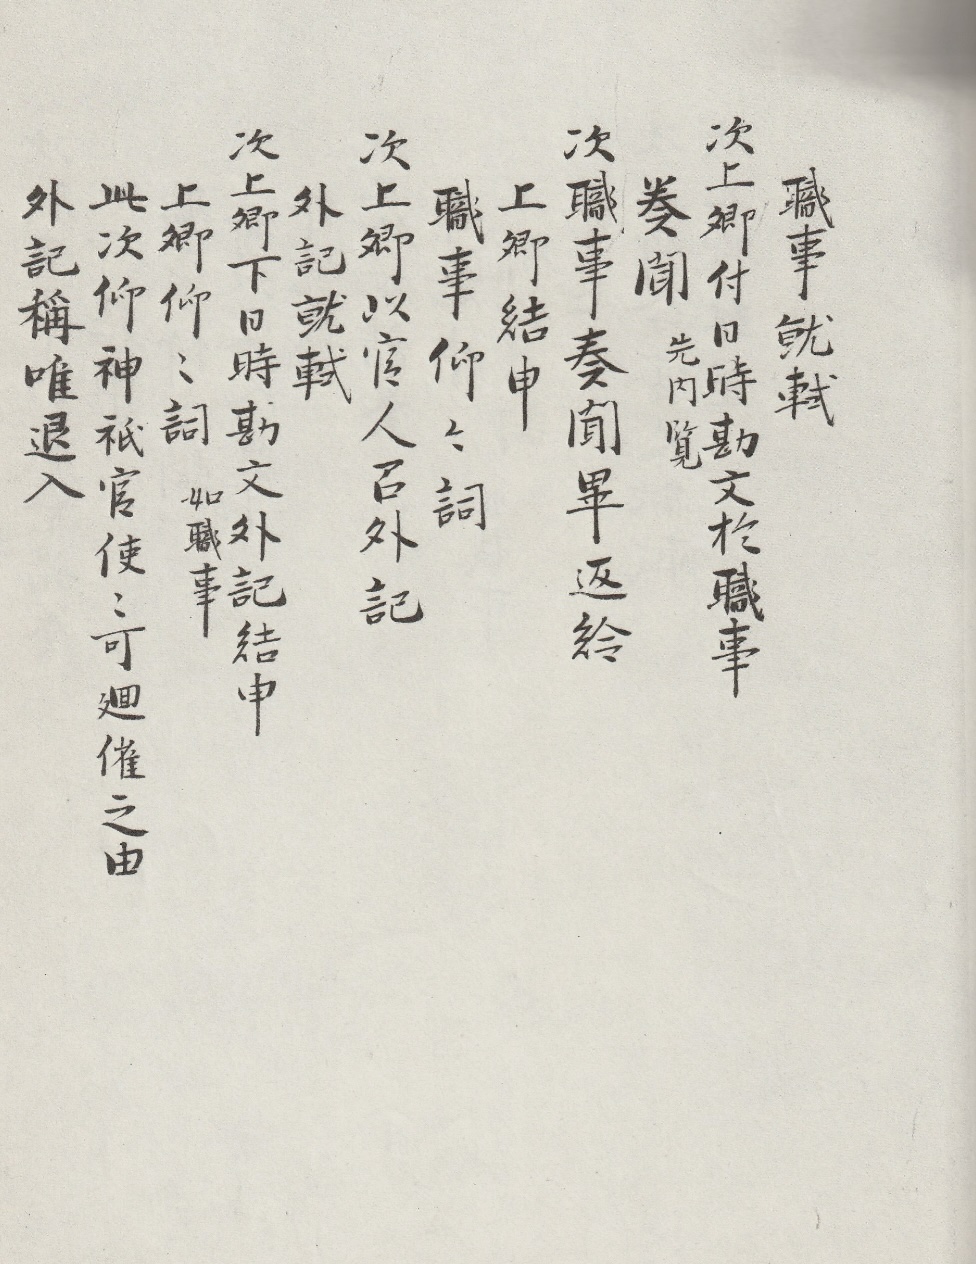 職事就軾
次上卿付日時勘文於職事
奏聞 先内覧
次職事奏聞畢返給
上卿結申
職事仰々詞
次上卿以官人召外記
外記就軾
次上卿下日時勘文外記結申
上卿仰〻詞 如職事
此次仰神祇官使〻可廻催之由
外記稱唯退入